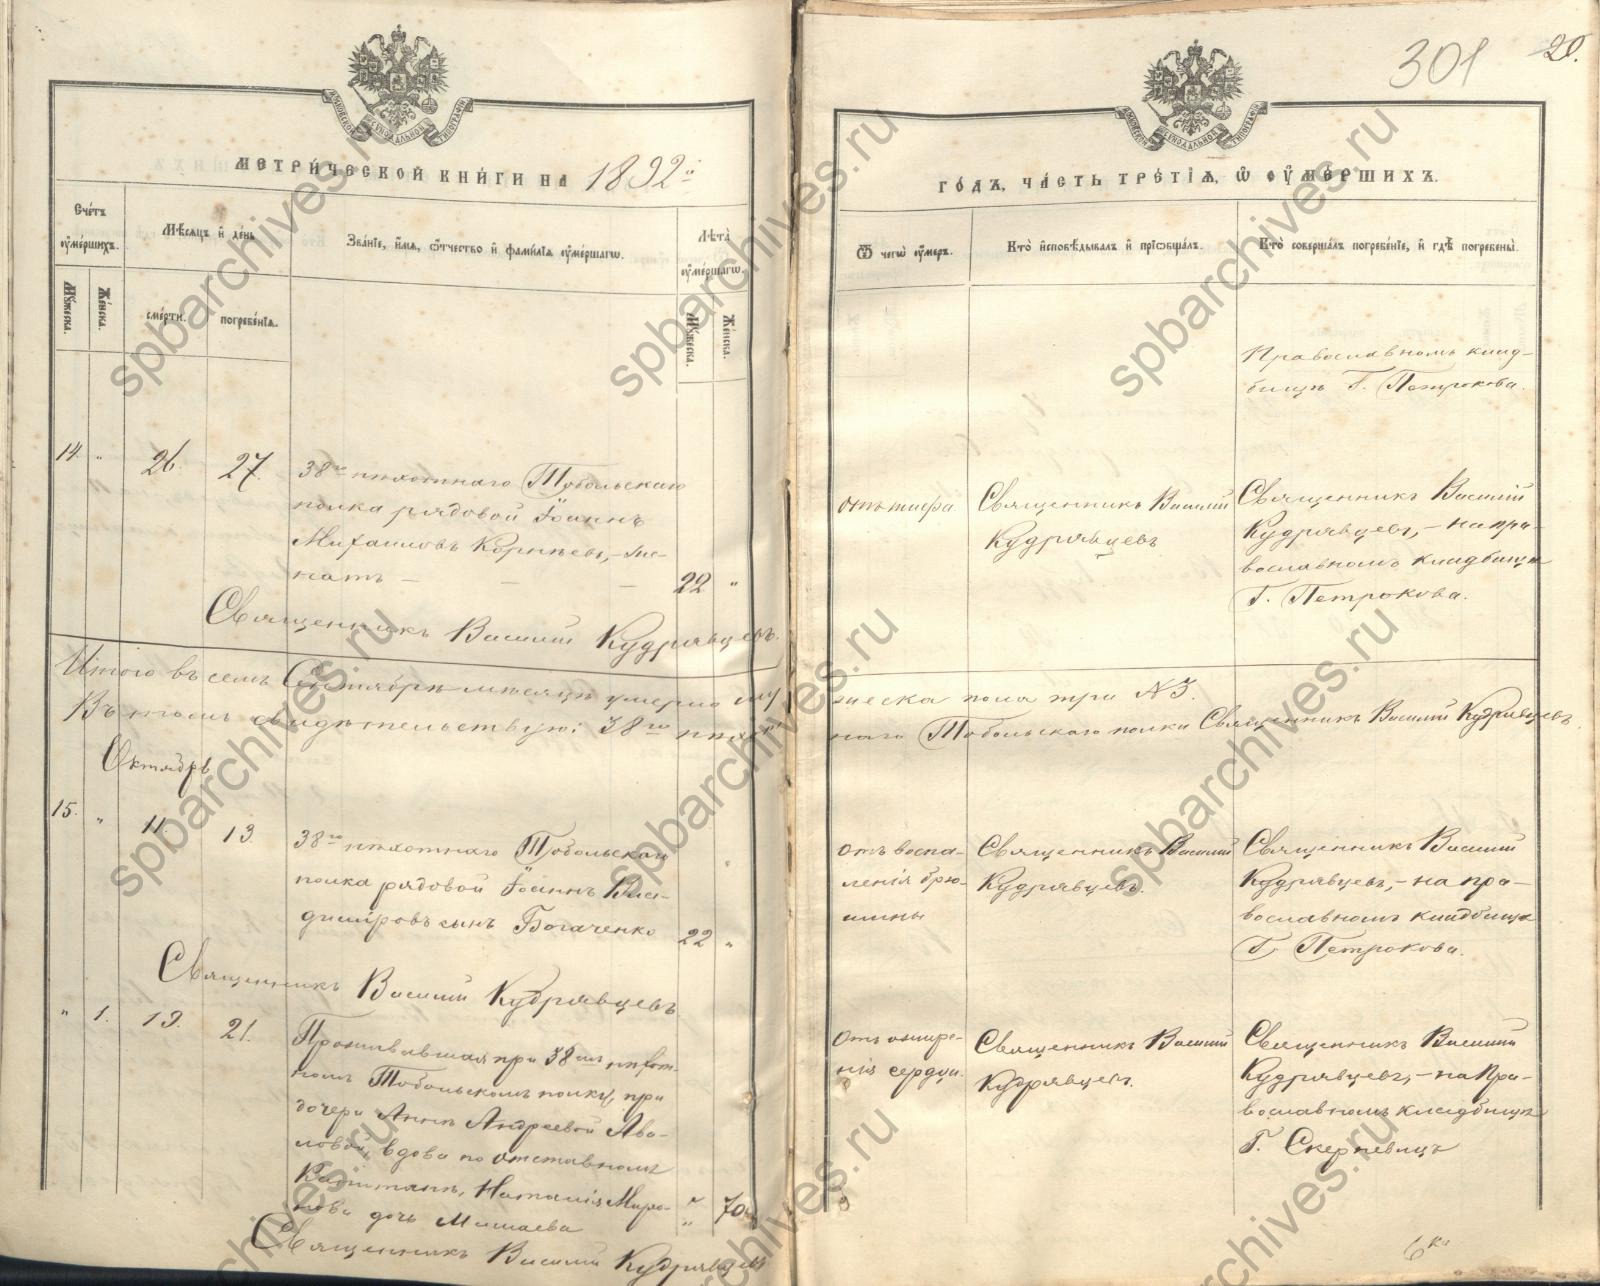 301
20.
МЕТРИЧЕСКОЙ КНИГИ НА 1892й
ГОДЪ, ЧАСТЬ ТРЕТІЯ, Ѿ ОУМЕРШИХЪ.
Счетъ оумершихъ.
Мужеска.
Женска.
Мѣсяцъ и день
смерти.
погребенія.
Званіе, имя, отчество и фамилія оумершагω.
Лѣта оумершагω.
Мужеска.
Женска.
Ѿ чегω оумеръ.
Кто исповѣдывалъ и пріобщалъ.
Кто совершалъ погребеніе, и гдѣ погребены.
Православномъ клад-
бищѣ г. Петрокова.
14. " 26. 27.
38го пѣхотнаго Тобольскаго
полка рядовой Іоаннъ
Михаиловъ Корнѣевъ, - же-
натъ - - - 22 "
отъ тифа
Священникъ Василій
Кудрявцевъ
Священникъ Василій
Кудрявцевъ, - на пра-
вославномъ кладбищѣ
г. Петрокова.
Священникъ Василий Кудрявцевъ.
Итого въ семъ Сентябрѣ мѣсяцѣ умерло му
жеска пола три №3.
Въ томъ свидѣтельствую: 38го пѣхот
наго Тобольскаго полка Священникъ Василій Кудрявцевъ.
Октябрь
15. " 11. 13.
38го пѣхотнаго Тобольскаго
полка рядовой Іоаннъ Вла-
диміровъ сынъ Богаченко 22 "
отъ воспа-
ленія брю-
шины
Священникъ Василій
Кудрявцевъ.
Священникъ Василій
Кудрявцевъ, - на пра-
вославномъ кладбищѣ
г. Петрокова.
Священникъ Василий Кудрявцевъ
" 1. 19. 21.
Проживавшая при 38мъ пѣхот-
номъ Тобольскомъ полку, при
дочери Аннѣ Андреевой Ава-
ловой, вдова по отставномъ
Капитанѣ, Наталія Миро-
нова дочь Мишаева " 70
отъ ожире-
нія сердца.
Священникъ Василій
Кудрявцевъ.
Священникъ Василій
Кудрявцевъ, - на Пра-
вославномъ кладбищѣ
г. Скерневицъ
Священникъ Василий Кудрявцевъ
spbarchives.ru